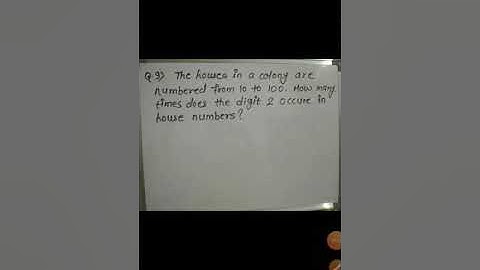 Q.9) The houses in a colony are
numbered from 10 to 100. How many
times does the digit 2 occure in
house numbers?